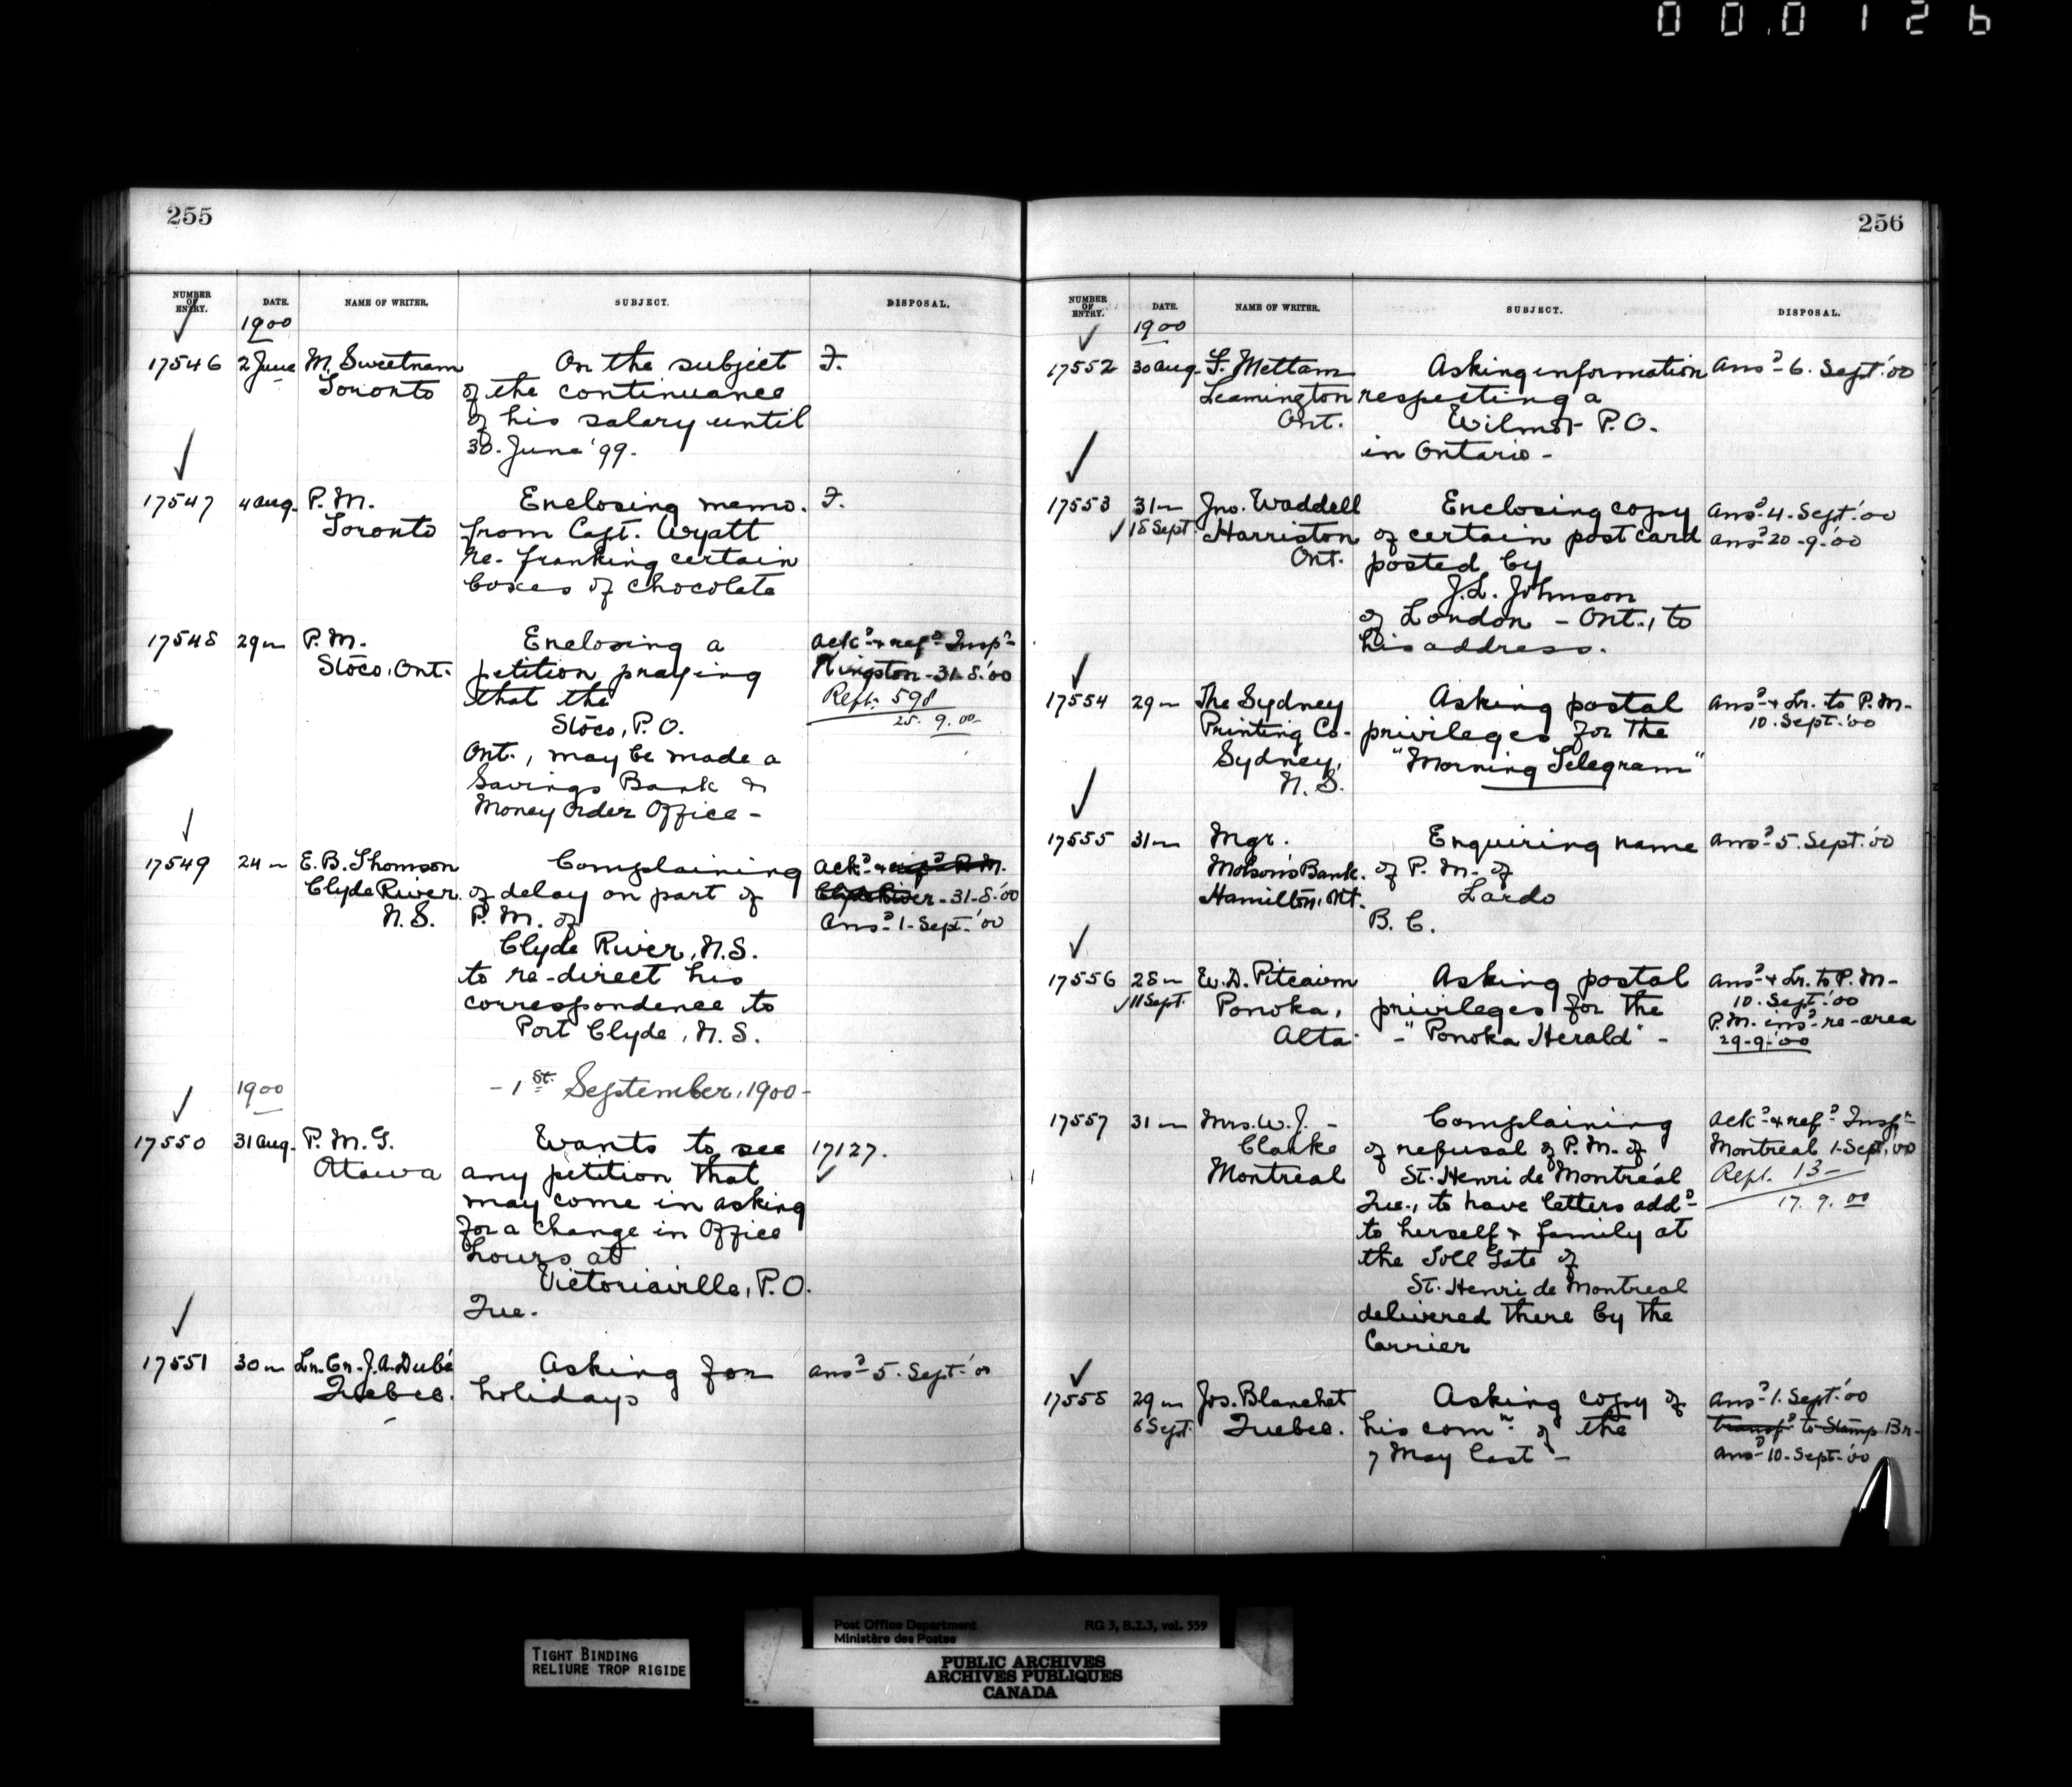 00.0126
255
NUMBER OF ENTRY. DATE. NAME OF WRITER. SUBJECT. DISPOSAL.
1900
17546 2 June M. Sweetnam On the subject F.
Toronto of the continuance
of his salary until
30. June '99.
17547 4 Aug. P.M. Enclosing memo. F.
Toronto from Capt. Wyatt
re. franking certain
boxes of chocolate
17548 29 " P.M. Enclosing a Ack.d & ref.d Insp.r
Stoco, Ont. petition praying Kingston - 31-8-'00
that the Rept. 598
Stoco, P.O. 25. 9. 00
Ont., may be made a
Savings Bank &
Money Order Office -
17549 24 " E.B. Thomson Complaining Ack.d &
Clyde River of delay on part of Clyde River - 31-8-'00
N.S. P.M. of Ans.d 1-Sept.'00
Clyde River, N.S.
to re-direct his
correspondence to
Port Clyde, N.S.
1900 - 1st September, 1900 -
17550 31 Aug. P.M.G. Wants to see 17127.
Ottawa any petition that
may come in asking
for a change in Office
hours at
Victoriaville, P.O.
Que.
17551 30 " Ln. Cr. J.A. Dubé Asking for Ans.d 5. Sept.'00
Quebec. holidays
256
NUMBER OF ENTRY. DATE. NAME OF WRITER. SUBJECT. DISPOSAL.
1900
17552 30 Aug. F. Mettam Asking information Ans.d 6. Sept.'00
Leamington respecting a
Ont. Wilmot P.O.
in Ontario -
17553 31 " Jno. Waddell Enclosing copy Ans.d 4. Sept.'00
18 Sept. Harriston of certain post card Ans.d 20-9-'00
Ont. posted by
J.L. Johnson
of London - Ont., to
his address.
17554 29 " The Sydney Asking postal Ans.d & Lr. to P.M.
Printing Co. privileges for the 10. Sept.'00
Sydney, "Morning Telegram"
N.S.
17555 31 " Mgr. Enquiring name Ans.d 5. Sept.'00
Molson's Bank. of P.M. of
Hamilton, Ont. Lardo
B.C.
17556 28 " W.D. Pitcairn Asking postal Ans.d & Lr. to P.M.
11 Sept. Ponoka, privileges for the 10. Sept.'00
Alta. - "Ponoka Herald" - P.M. ins.d re-area
29-9-'00
17557 31 " Mrs. W.J. - Complaining Ack.d & ref.d Insp.r
Clarke of refusal of P.M. of Montreal 1-Sept.'00
Montreal St. Henri de Montréal Rept. 13-
Que., to have letters add.d 17. 9. 00
to herself & family at
the Toll Gate of
St. Henri de Montreal
delivered there by the
Carrier
17558 29 " Jos. Blanchet Asking copy of Ans.d 1. Sept.'00
6 Sept. Quebec. his com.n of the transf.d to Stamp Br.
7 May last - Ans.d 10. Sept.'00
TIGHT BINDING
RELIURE TROP RIGIDE
Post Office Department RG 3, B.2.3, vol. 559
Ministère des Postes
PUBLIC ARCHIVES
ARCHIVES PUBLIQUES
CANADA